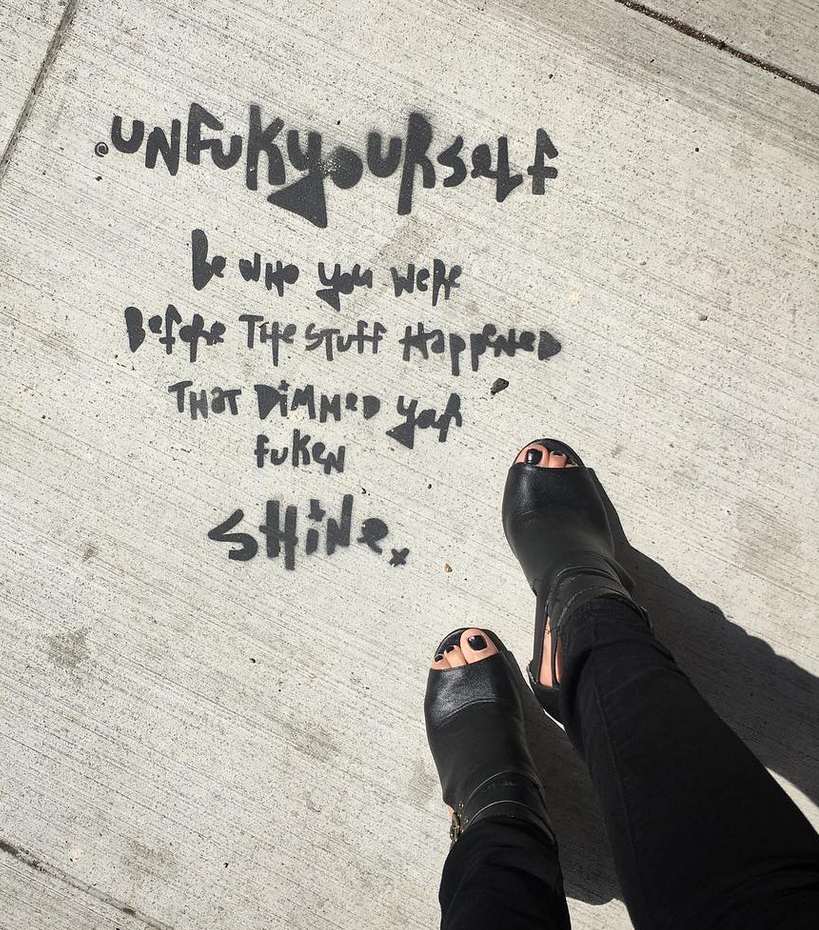 @UNFUKyOURSelf
Be WHO you WeRe
BefoRe THe STUFF HappeNeD
THaT DiMMeD yoR
fUKeN
SHiNe.x